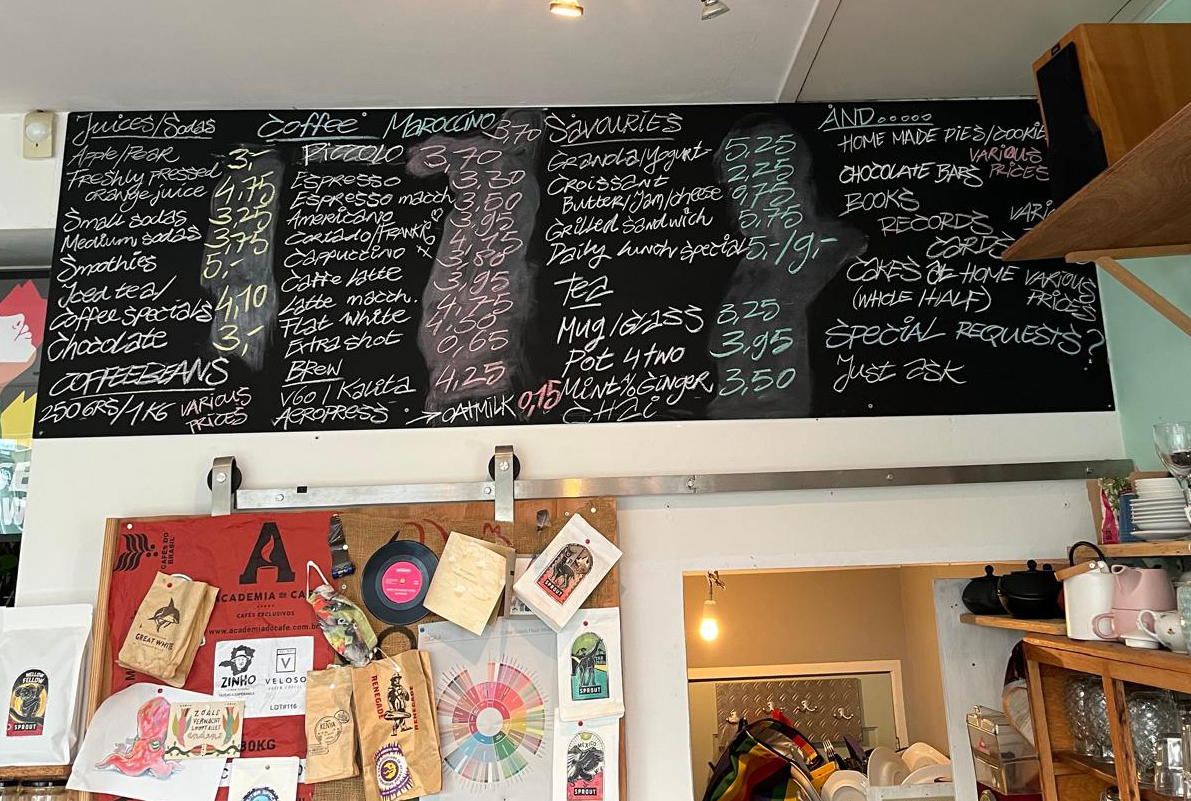 Juices/Sodas
Apple/Pear 3,-
Freshly pressed
orange juice 4,75
Small sodas 3,25
Medium sodas 3,75
Smoothies 5,-
Iced tea/
Coffee specials 4,10
Chocolate 3,-
COFFEEBEANS
250 GRS/1 KG VARIOUS PRICES
Coffee MAROCCINO 3,70
PICCOLO 3,70
Espresso 3,30
Espresso macch 3,50
Americano 3,95
Cortado/FRANKIE
Cappuccino
Caffe latte 3,95
Latte macch. 4,75
Flat white
Extra shot 0,65
Brew
V60/Kalita 4,25
AEROPRESS
→ OATMILK 0,15
SAVOURIES
Granola/Yogurt 5,25
Croissant 2,25
Butter/jam/cheese 0,75
Grilled sandwich 5,75
Daily lunch special 5,-/9,-
Tea
Mug/GLASS 3,25
Pot 4 two 3,95
Mint%Ginger 3,50
CHAi
AND.....
HOME MADE PIES/COOKIE
VARIOUS PRICES
CHOCOLATE BARS
BOOKS
RECORDS
CARDS
CAKES @ HOME VARIOUS
(WHOLE/HALF) PRICES
SPECIAL REQUESTS?
Just ask
CAFÉS DO BRASIL
A
ACADEMIA DO CA
CAFÉS EXCLUSIVOS
www.academiadocafe.com.br
GREAT WHITE
ZINHO
V
VELOSO
LOT#116
30KG
MELLOW FELLOW
SPROUT
ZOALS
VERWACHT
LOOPT ALLES
anders
KENYA
RENEGADE
SPROUT
SPROUT
MEXICO
SPROUT